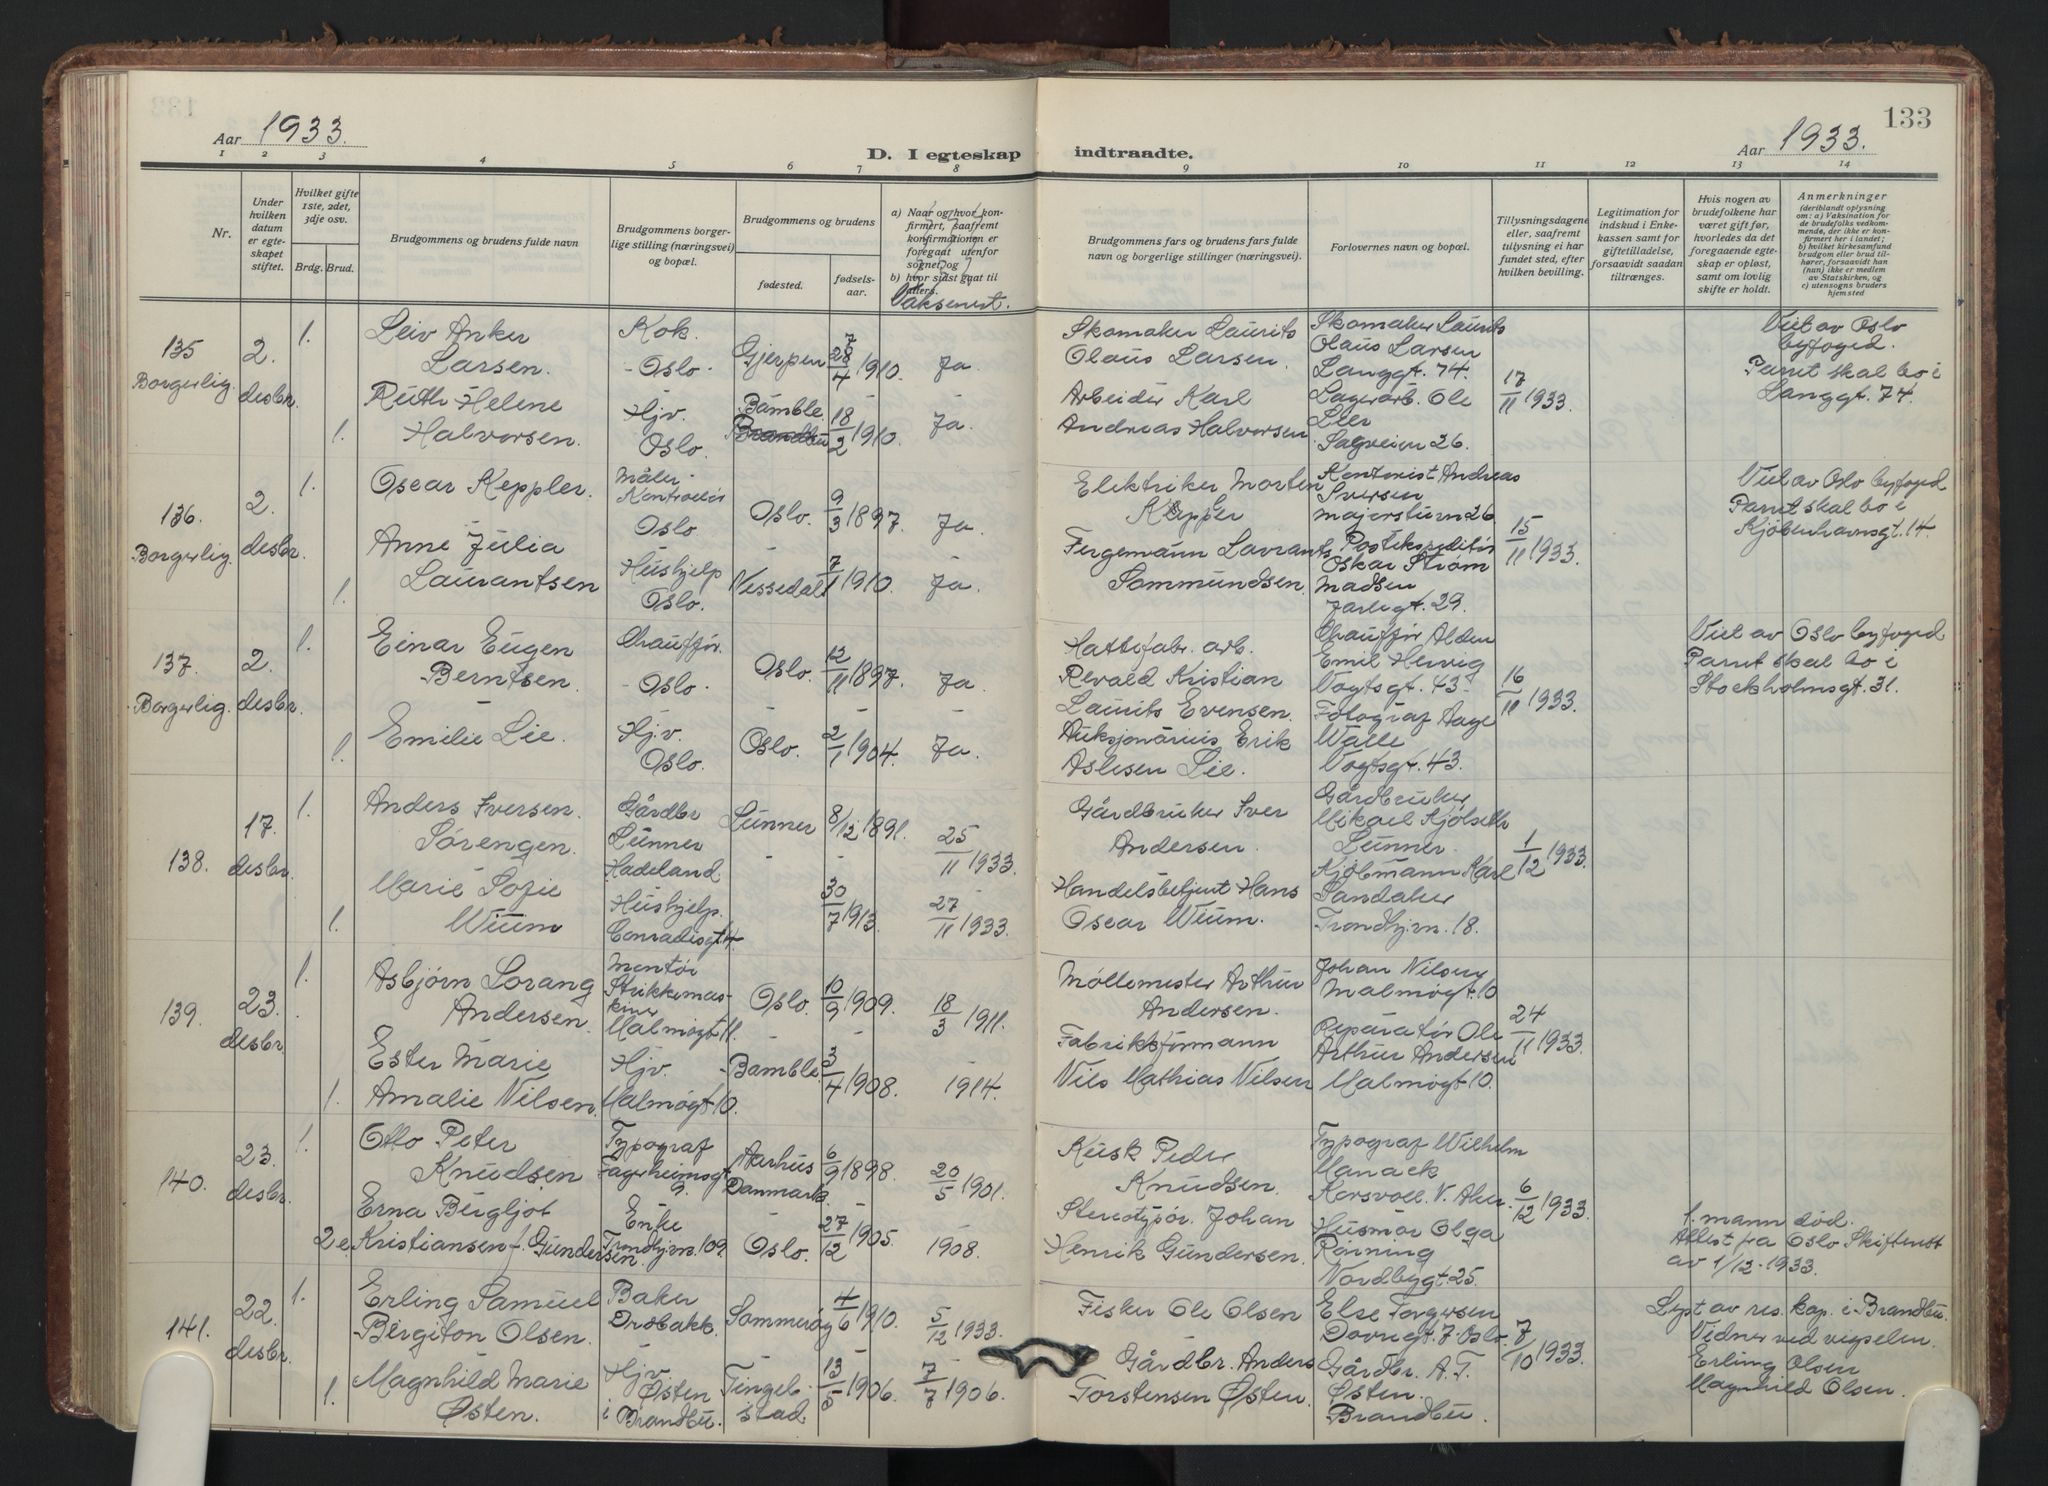 133
Aar 1933.
D. I egteskap
indtraadte.
Aar 1933.
1 2 3 4 5 6 7 8 9 10 11 12 13 14
Nr.
Under hvilken datum er egteskapet stiftet.
Hvilket gifte 1ste, 2det, 3dje osv.
Brdg. Brud.
Brudgommens og brudens fulde navn
Brudgommens borgerlige stilling (næringsvei) og bopæl.
Brudgommens og brudens
fødested.
fødselsaar.
a) Naar og hvor konfirmert, saafremt konfirmationen er foregaat utenfor sognet og
b) hvor sidst gaat til alters.
Vaksenert.
Brudgommens fars og brudens fars fulde navn og borgerlige stillinger (næringsvei).
Forlovernes navn og bopæl.
Tillysningsdagene eller, saafremt tulysning ei har fundet sted, efter hvilken bevilling.
Legitimation for indskud i Enkekassen samt for giftetilladelse, forsaavidt saadan tiltrænges.
Hvis nogen av brudefolkene har været gift før, hvorledes da det foregaaende egteskap er opløst, samt om lovlig skifte er holdt.
Anmerkninger
(deriblandt oplysning om: a) Vaksination for de brudefolks vedkommende, der ikke er konfirmert her i landet; b) hvilket kirkesamfund brudgom eller brud tilhører, forsaavidt han (hun) ikke er medlem av Statskirken, og c) utensogns bruders hjemsted
135 Borgerlig.
2. desbr.
1. Leiv Anker Larsen.
Kok. Oslo.
Gjerpen 28/4 1910. Ja.
Skomaker Laurits Olaus Larsen.
Skomaker Laurits Olaus Larsen Langgt. 74.
17/11 1933.
Viet av Oslo byfoged.
Parret skal bo i Langgt. 74.
1. Ruth Helene Halvorsen.
Hjv. Oslo.
Bamble 18/2 1910. Ja.
Arbeider Karl Andreas Halvorsen
Lagerarb. Ole Lier Sagveien 26.
136. Borgerlig.
2. desbr.
1. Oscar Keppler.
Måler-Kontrollør Oslo
Oslo. 9/3 1897. Ja.
Elektriker Morten Kepper
Kontorist Andreas Iversen Majorstuvn 26.
15/11 1933.
Viet av Oslo byfoged
Parret skal bo i Kjøbenhavnsgt. 14.
1. Anne Julia Laurantsen
Hushjelp Oslo.
Vissedal 7/1 1910. Ja.
Fergemann Lavrants Sammundsen.
Postekspeditør Oskar Strøm Madsen Jarlegt. 29.
137. Borgerlig.
2. desbr.
1. Einar Eugen Berntsen.
Chauffør. Oslo.
Oslo. 12/11 1897. Ja.
Hattefabr. arb. Revald Kristian Laurits Evensen.
Chauffør Alden Emil Hervig Vogtsgt. 43.
16/11 1933.
Viet av Oslo byfoged
Parret skal bo i Stockholmsgt. 31.
1. Emilie Lie.
Hj.v. Oslo.
Oslo. 2/1 1904. Ja.
Auksjonarius Erik Aslesen Lie.
Fotograf Aage Walle Vogtsgt. 43.
138.
17. desbr.
1. Anders Iversen Sørengen.
Gårdbr Lunner Hadeland.
Lunner 8/12 1891. 25/11 1933.
Gårdbruker Iver Andersen.
Gårdbruker Mikael Kjølseth Lunner.
1/12 1933.
1. Marie Sofie Wium
Hushjelp. Conradisgt 4
30/7 1913. 27/11 1933.
Handelsbetjent Hans Oscar Wium.
Kjøbmann Karl Sandaker Trondhj.vn. 18.
139.
23. desbr.
1. Asbjørn Lorang Andersen.
Montør Strikkemaskiner Malmøgt 11.
Oslo. 10/9 1909. 18/3 1911.
Møllemester Arthur Andersen.
Johan Nilsen Malmøgt. 10
24/11 1933.
1. Ester Marie Amalie Nilsen.
Hjv. Malmøgt 10.
Bamble. 3/4 1908. 1914.
Fabrikkformann Nils Mathias Nilsen
Reparatør Ole Arthur Andersen Malmøgt 10.
140.
23. desbr.
1. Otto Peter Knudsen
Typograf Fagerheimsgt 9.
Aarhus Danmark. 6/9 1898. 20/5 1901.
Kusk Peder Knudsen.
Typograf Wilhelm Manack Korsvoll. V. Aker.
6/12 1933.
2e Erna Bergljot Kristiansen f. Gundersen.
Enke Trondhj.vn. 109.
Oslo. 27/12 1905. 1908.
Stereotypør. Johan Henrik Gundersen.
Husmor Olga Rørning Nordbygt. 25.
1. mann død.
Attest fra Oslo Skifterett av 1/12-1933.
141.
22. desbr.
1. Erling Samuel Bergiton Olsen.
Baker Drøbakk.
Sommerøy 4/6 1910. 5/12 1933.
Fisker Ole Olsen
Else Torgersen Dovregt. 7. Oslo.
7/10 1933.
Lyst av res. kap. i Brandbu.
Vidner ved vigselen.
Erling Olsen
Magnhild Olsen.
1. Magnhild Marie Østen.
Hjv. Østen i Brandbu.
Tingelstad. 13/5 1906. 7/7 1906.
Gårdbr. Anders Torstensen Østen.
Gårdbr. A.T. Østen. Brandbu.